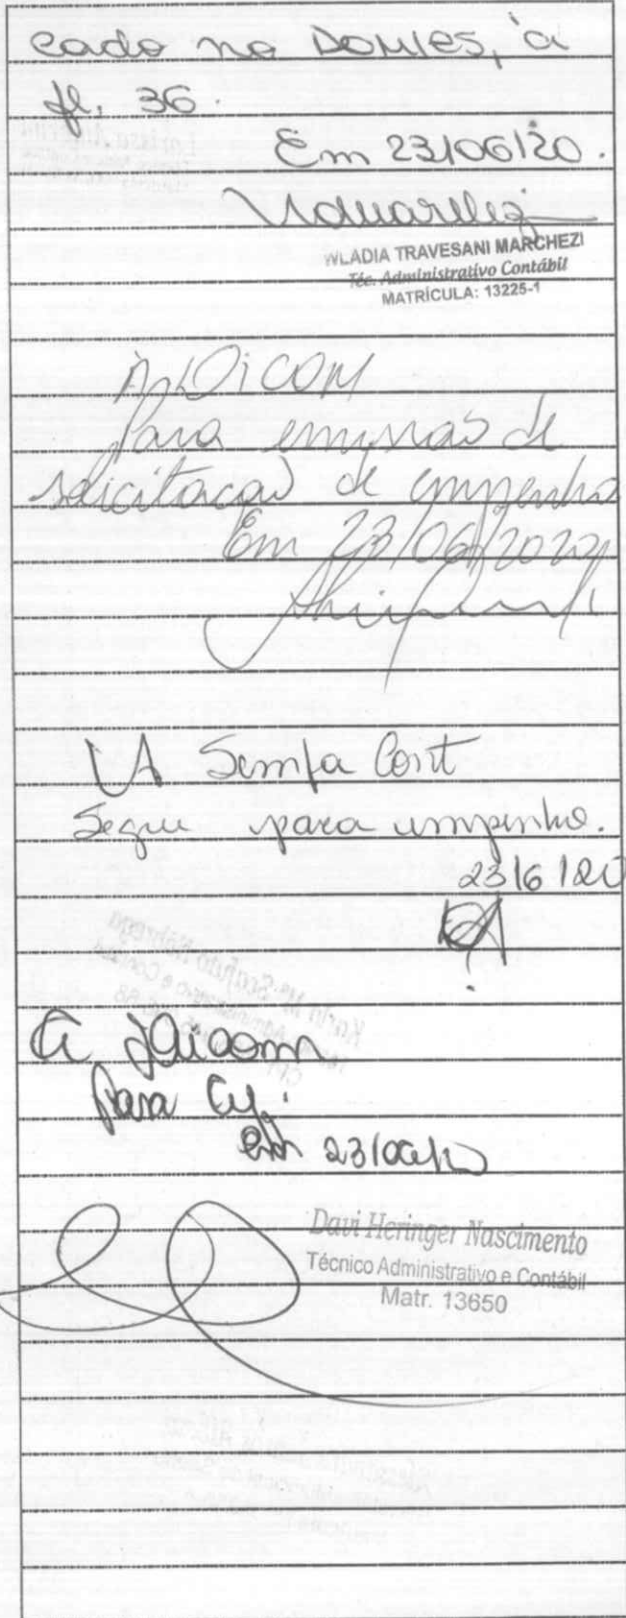 cado no DOM/ES, à
fl. 36.
Em 23/06/20.
WLADIA TRAVESANI MARCHEZI
Téc. Administrativo Contábil
MATRÍCULA: 13225-1
DICOM
Para emissão de
solicitação de empenho
Em 23/06/2020
A Semfa Cont
Segue para empenho.
23/6/20
Para
em 23/06/20
Davi Heringer Nascimento
Técnico Administrativo e Contábil
Matr. 13650